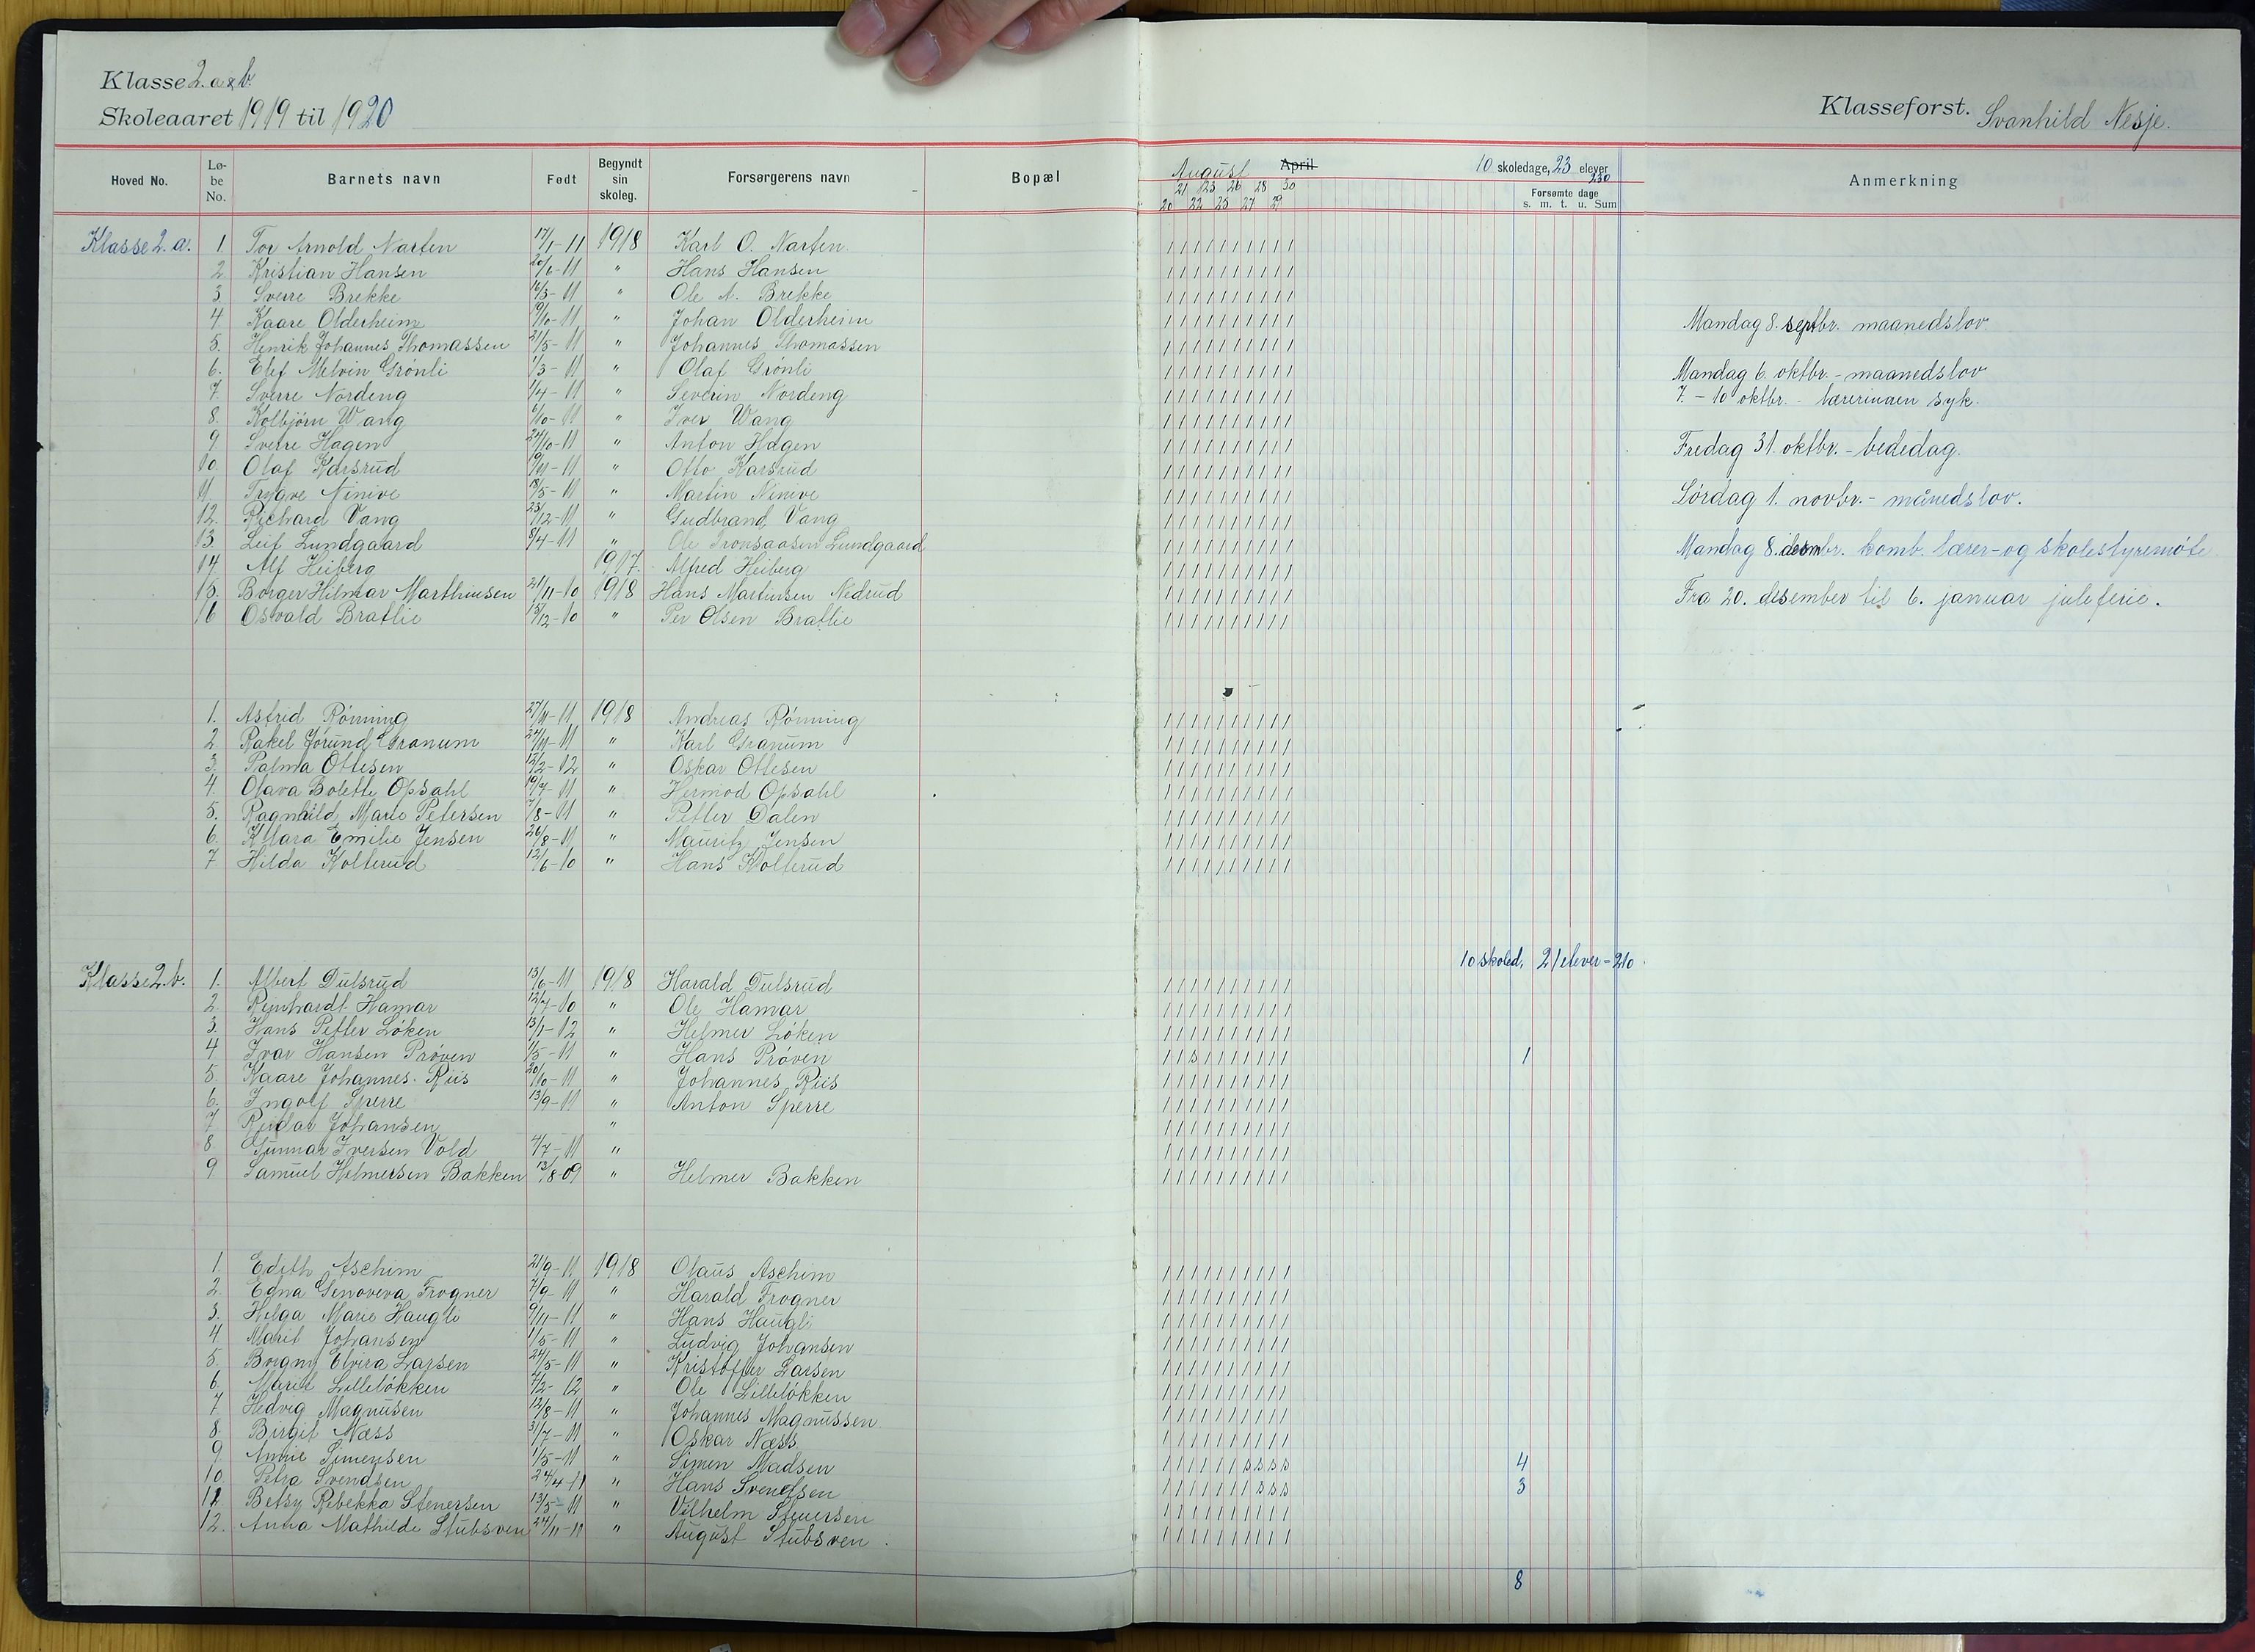 Klasse 2. a & b.
Skoleaaret 1919 til 1920
Klasseforst. Svanhild Nesje.
Hoved No. Lø-be No. Barnets navn Født Begyndt sin skoleg. Forsørgerens navn Bopæl August April 10 skoledage, 23 elever 230 Anmerkning
Forsømte dage
s. m. t. u. Sum
21 23 26 28 30
20 22 25 27 29
Klasse 2. a. 1. Tor Arnold Narten 17/1-11 1918 Karl O. Narten
2. Kristian Hansen 20/6-11 " Hans Hansen
3. Sverre Brekke 16/3-11 " Ole A. Brekke
4. Kaare Olderheim 19/10-11 " Johan Olderheim Mandag 8. septbr. maanedslov
5. Henrik Johannes Thomassen 21/5-11 " Johannes Thomassen
6. Elef Melvin Grönli 1/3-11 " Olaf Grönli Mandag 6. oktbr. - maanedslov
7. Sverre Nordeng 1/4-11 " Severin Nordeng 7. - 10 oktbr. - lærerinnen syk.
8. Kolbjörn Wang 6/10-11 " Iver Wang
9 Sverre Hagen 24/10-11 " Anton Hagen Fredag 31. oktbr. - bededag.
10. Olaf Karsrud 19/11-11 " Otto Karsrud
11. Trygve Ninive 18/5-11 " Martin Ninive Lördag 1. novbr. - månedslov.
12. Richard Vang 23/12-11 " Gudbrand Vang
13 Leif Lundgaard 8/4-11 " Ole Tronsaasen Lundgaard Mandag 8. desmbr. komb. lærer-og skolestyremöte
14 Alf Heiberg 1917. Alfred Heiberg
15. Borger Hilmar Marthinsen 21/11-10 1918 Hans Martinsen Nedrud Fra 20. desember til 6. januar juleferie.
16 Osvald Bratlie 15/12-10 " Per Olsen Bratlie
1. Astrid Rönning 27/11-11 1918 Andreas Rönning
2. Rakel Jorund Granum 24/11-11 " Karl Granum
3. Palma Ottesen 12/2-12 " Oskar Ottesen
4. Olava Bolette Opsahl 19/7-11 " Hermod Opsahl
5. Ragnhild Marie Petersen 7/8-11 " Petter Dalen
6. Klara Emilie Jensen 26/8-11 " Mauritz Jensen
7 Hilda Kolterud 12/6-10 " Hans Kolterud
10 skoled, 21 elever = 210.
Klasse 2. b. 1. Albert Dulsrud 13/6-11 1918 Harald Dulsrud
2. Reinhardt Hamar 12/7-10 " Ole Hamar
3. Hans Petter Löken 13/1-12 " Helmer Löken
4 Ivar Hansen Pröven 1/5-11 " Hans Pröven 1
5. Kaare Johannes Riis 20/10-11 " Johannes Riis
6. Ingolf Sperre 13/9-11 " Anton Sperre
7 Reidar Johansen "
8 Gunnar Iversen Vold 4/7-11 "
9 Samuel Helmersen Bakken 13/8 09 " Helmer Bakken
1. Edith Aschim 21/9-11. 1918 Olaus Aschim
2. Edna Genoveva Frogner 7/9-11 " Harald Frogner
3. Helga Marie Haugli 9/11-11 " Hans Haugli
4 Marit Johansen 1/5-11 " Ludvig Johansen
5. Borgny Elvira Larsen 24/5-11 " Kristoffer Larsen
6. Marit Lillelökken 4/2-12 " Ole Lillelökken
7 Hedvig Magnusen 12/8-11 " Johannes Magnussen
8. Birgit Næss 31/7-11 " Oskar Næss
9 Annie Simensen 1/5-11 " Simen Madsen 4
10 Petra Svendsen 24/4-11 " Hans Svendsen 3
11. Betsy Rebekka Stenersen 13/5-11 " Vilhelm Stenersen
12. Anna Mathilde Stubsven 24/11-11 " August Stubsven.
8